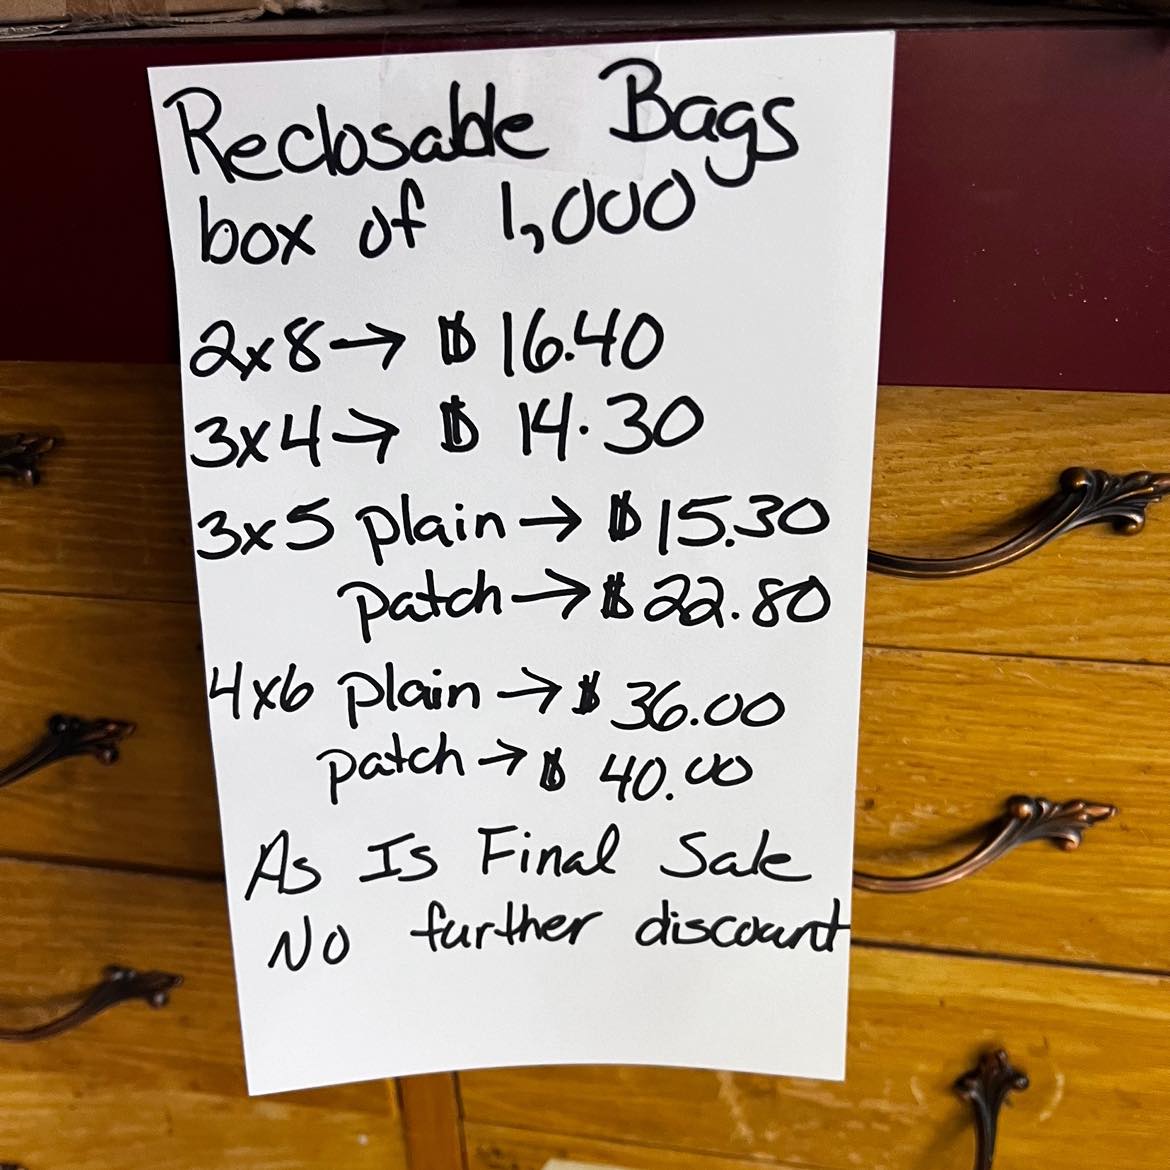 Reclosable Bags
box of 1,000
2x8→ $ 16.40
3x4→ $ 14.30
3x5 plain→ $15.30
patch→ $22.80
4x6 plain→ $ 36.00
patch→ $ 40.00
As Is Final Sale
No further discount